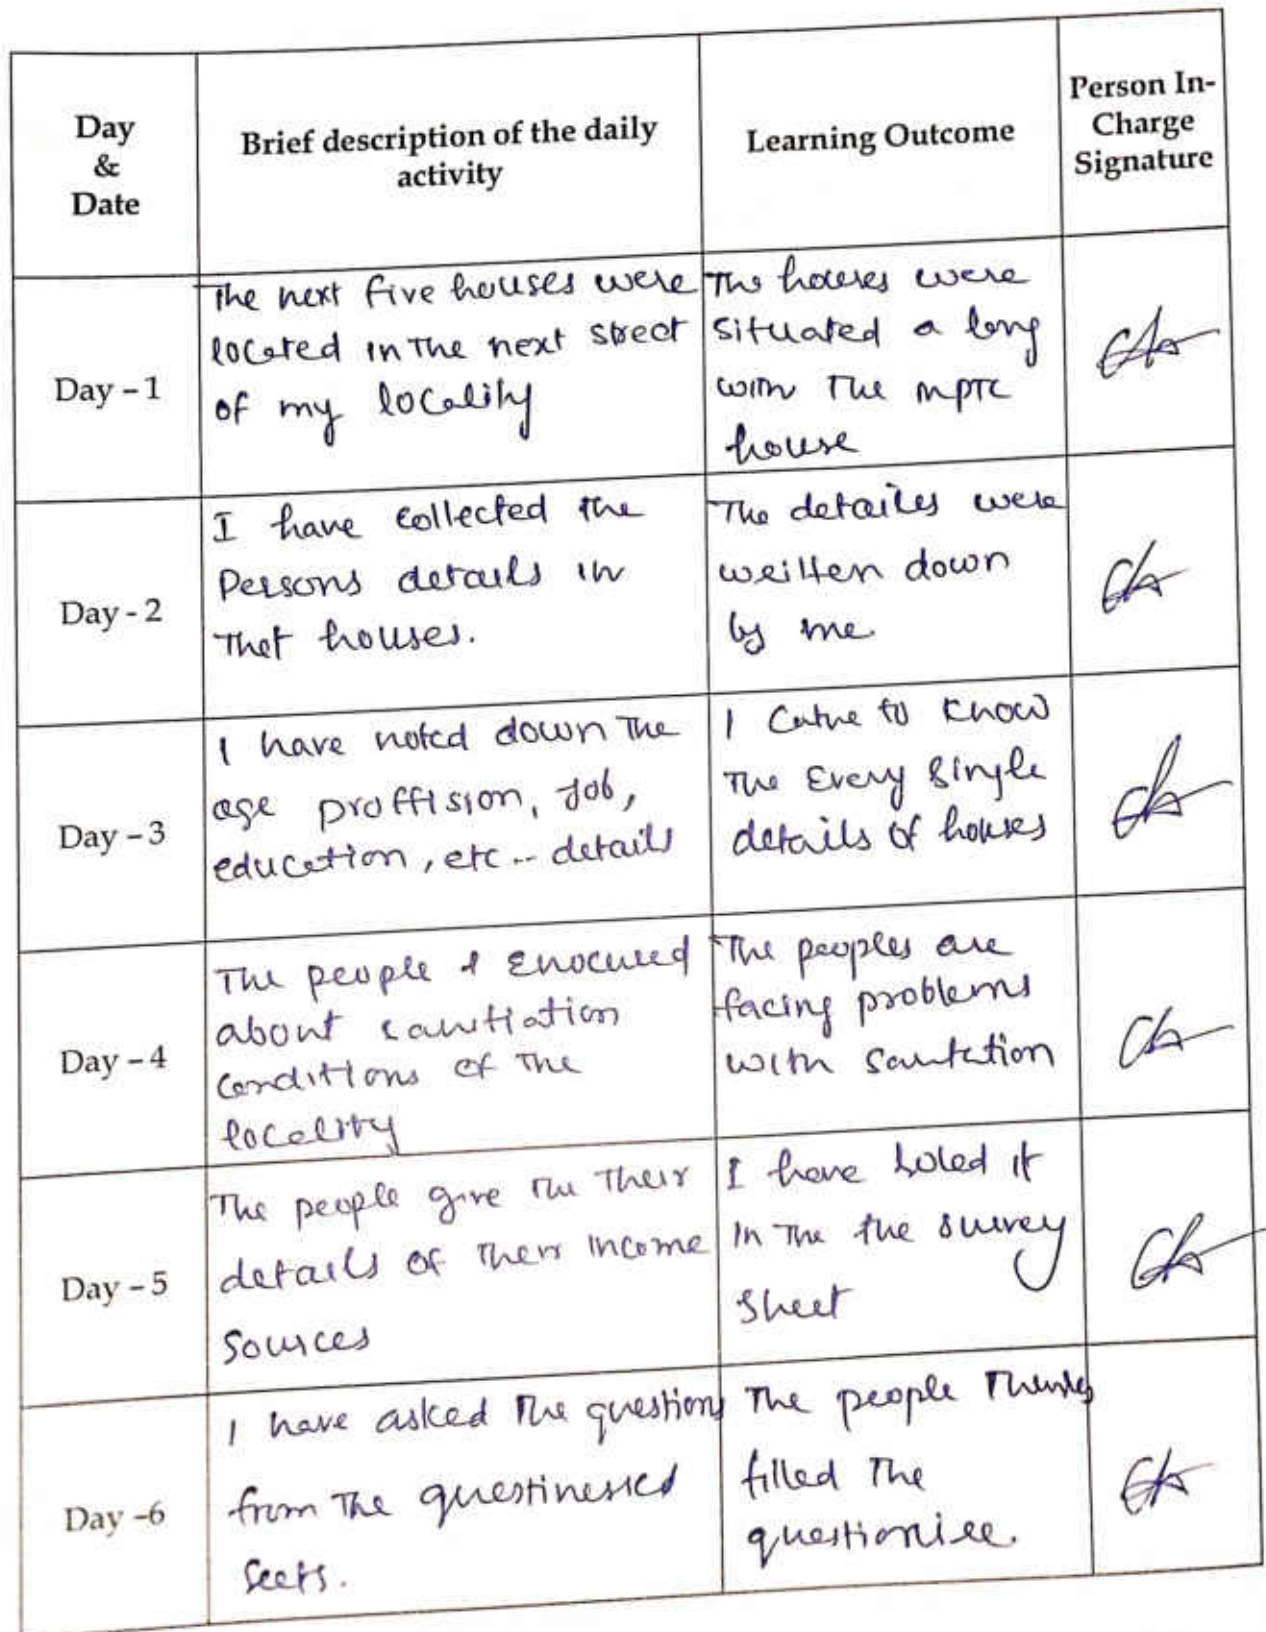 Day
&
Date
Brief description of the daily
activity
Learning Outcome
Person In-
Charge
Signature
Day – 1
The next five houses were
located in the next street
of my locality
The houses were
situated a long
with The MPTC
house
Day - 2
I have collected the
Persons details in
that houses.
The detailes were
written down
by me.
Day – 3
I have noted down The
age proffision, Job,
education, etc.. details
I Came to Know
The Every Single
details of houses
Day – 4
The people I
about
conditions of The
locality
The peoples are
facing problems
with
Day – 5
The people give Their
details of Their Income
Sources
I have it
in The the survey
Sheet
Day -6
I have asked The questions
from The
seets.
The people
filled The